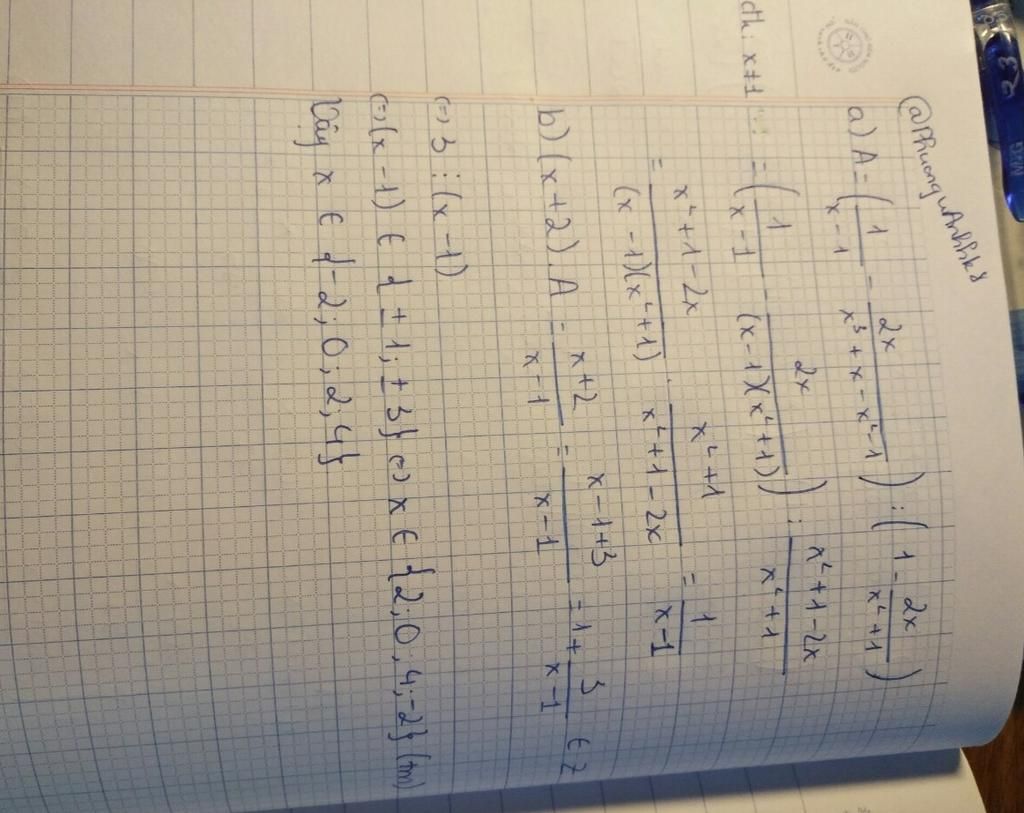 @PhuonguAnhhk8
a) A = (1/(x-1) - 2x/(x³+x-x²-1)) : (1 - 2x/(x²+1))
đk: x≠1
= (1/(x-1) - 2x/((x-1)(x²+1))) : (x²+1-2x)/(x²+1)
= (x²+1-2x)/((x-1)(x²+1)) . (x²+1)/(x²+1-2x) = 1/(x-1)
b) (x+2).A = (x+2)/(x-1) = (x-1+3)/(x-1) = 1 + 3/(x-1) ∈ Z
(=) 3 ⋮ (x-1)
(=) (x-1) ∈ {±1; ±3} (=) x ∈ {2; 0; 4; -2} (tm)
Vậy x ∈ {-2; 0; 2; 4}